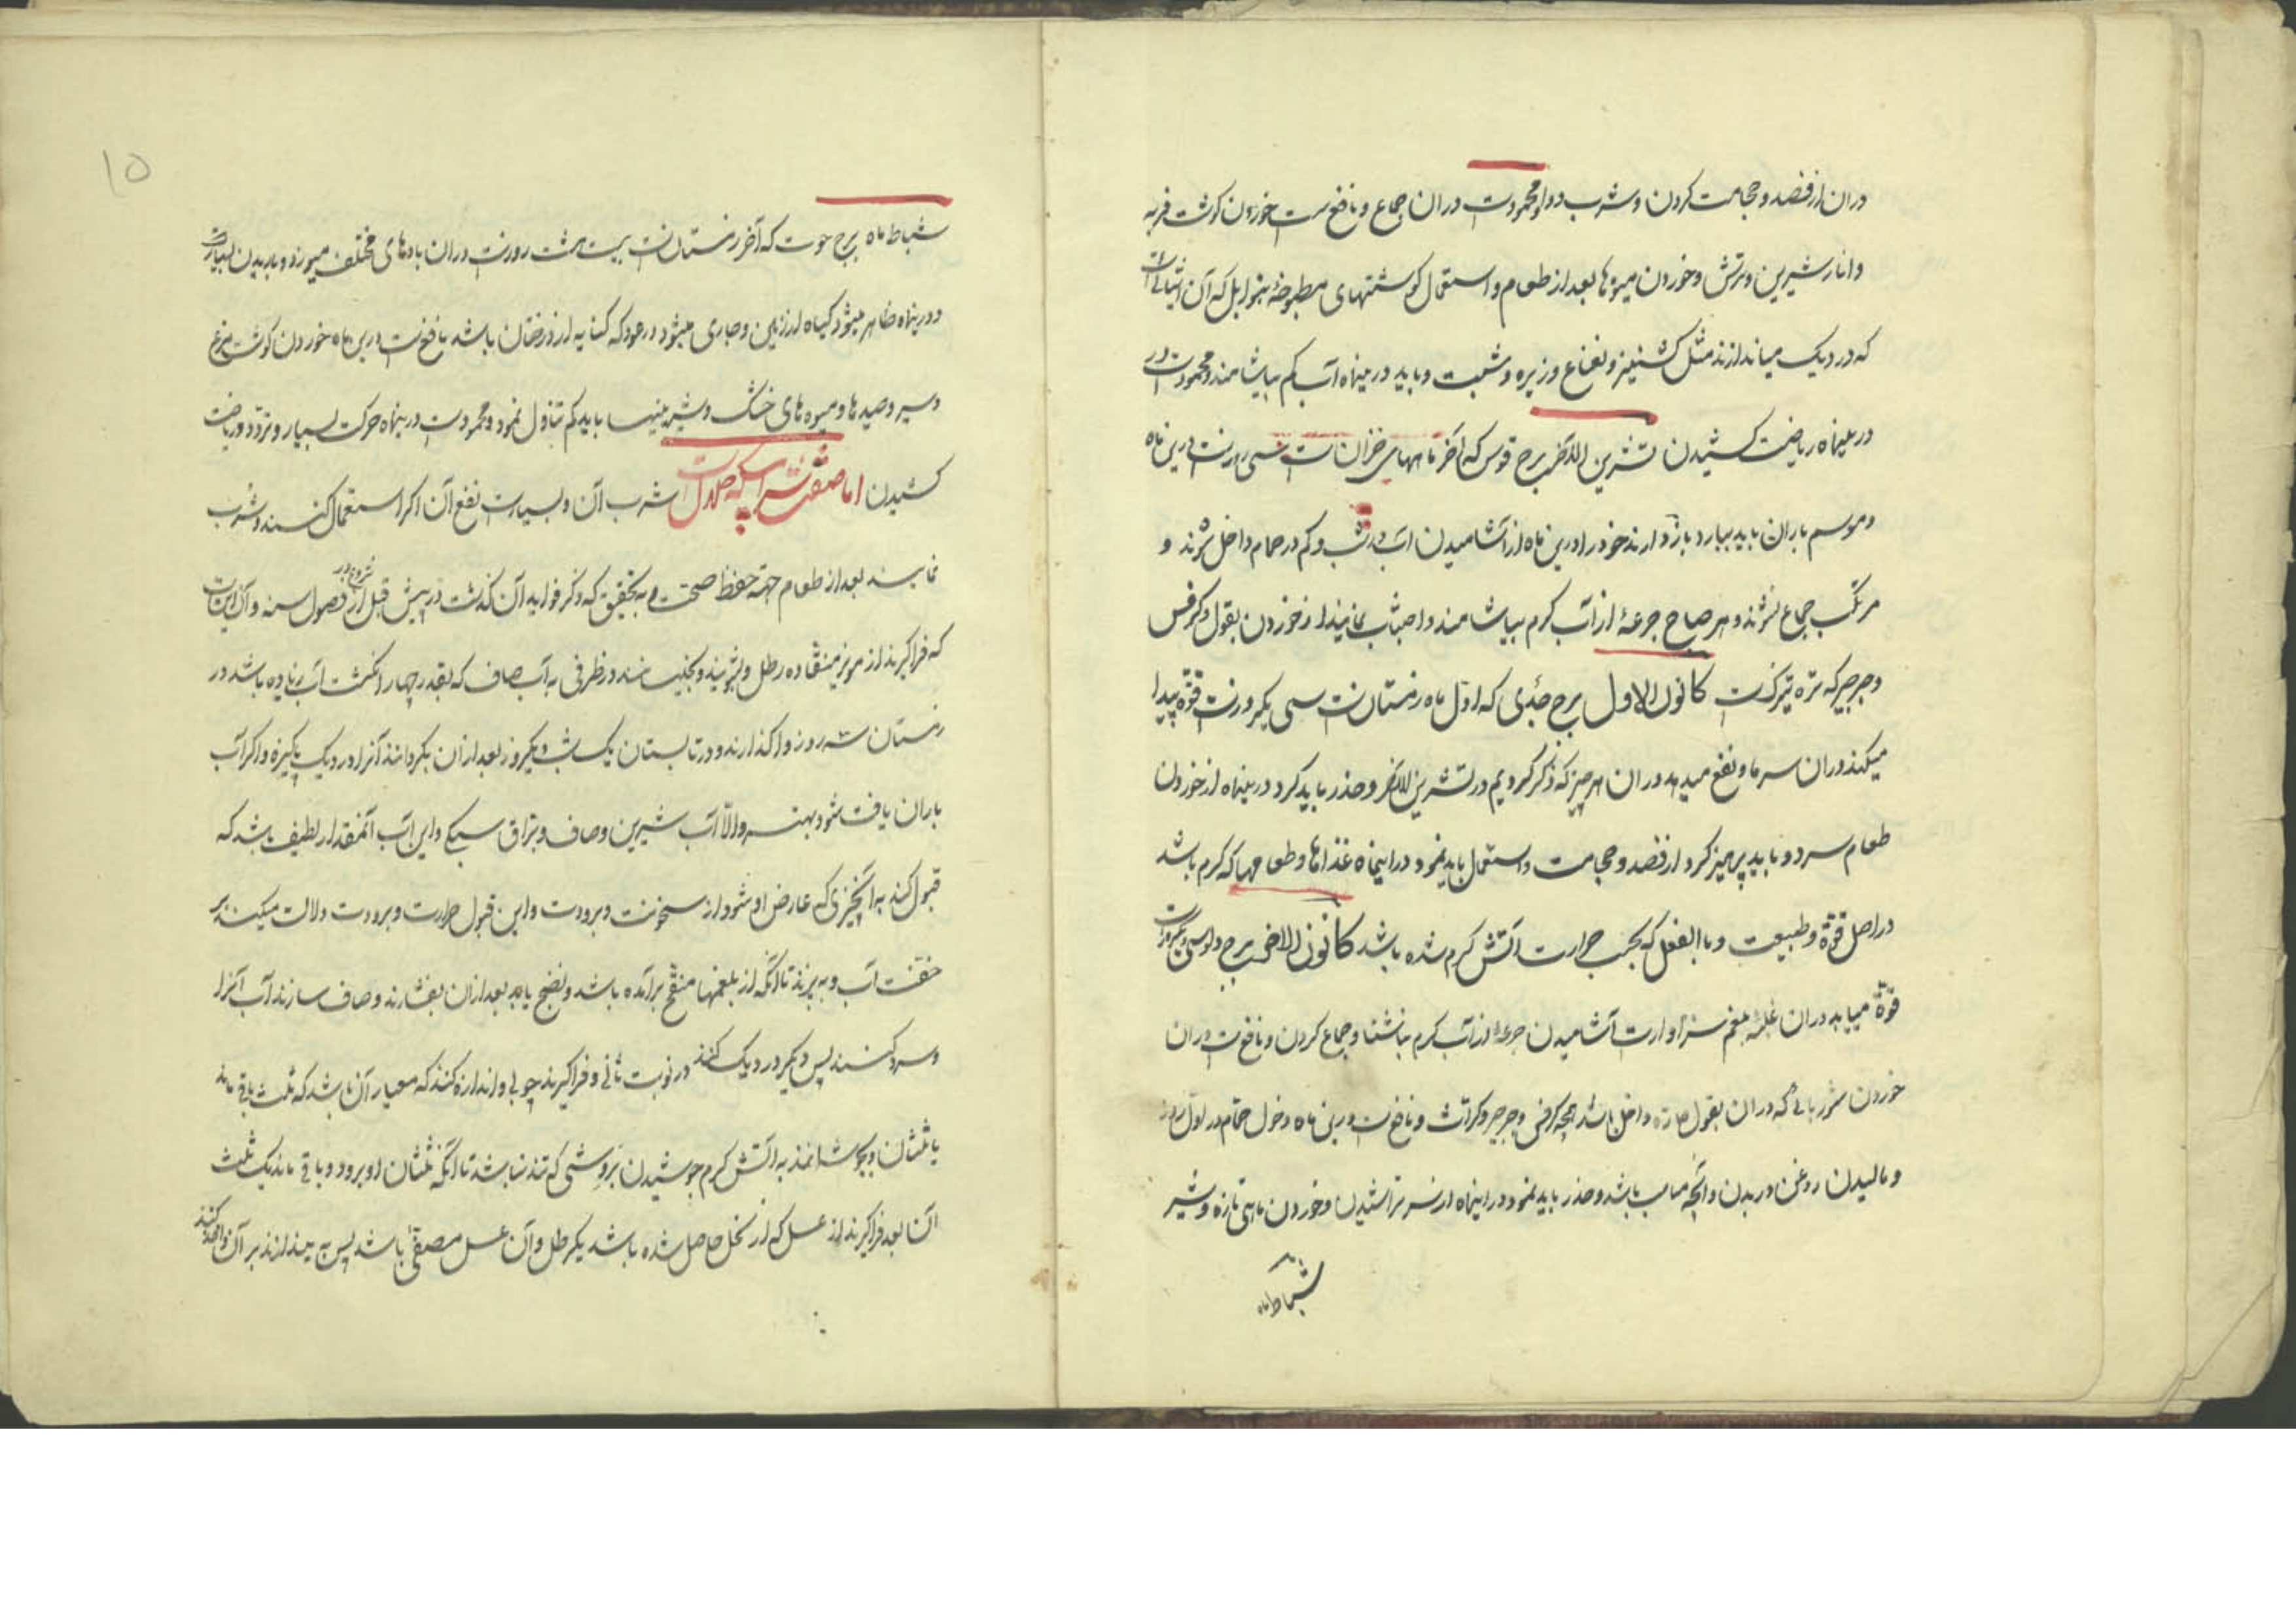 دران از فصد و حجامت کردن و شرب دوا و محمودست دران جماع و نافع ست خوردن کوشت فربه
و انار شیرین و ترش و خوردن میوها بعد از طعام و استعمال کوشتهای مطبوخهٔ بتوابل که آن
که در دیک میاندازند مثل کشنیز و نعناع و زیره و شبت و باید درینماه آب کم بیاشامند و محمودست
درینماه ریاضت کشیدن تشرین الاخر برج قوس که آخر ماههای خزان است سی روزست درین ماه
و موسم باران باید ببارد باز دارند خود را درین ماه از آشامیدن آب در شب و کم در حمام داخل شوند و
مرتکب جماع نشوند و هر صباح جرعهٔ از آب کرم بیاشامند و اجتناب نمایند از خوردن بقول و کرفس
و جرجیر که تره تیزکست کانون الاول برج جدی که اول ماه زمستان ست سی یکروزست قوة پیدا
میکند دران سرما و نفع میدهد دران هر چیز که ذکر کردیم در تشرین الاخر و حذر باید کرد درینماه از خوردن
طعام سرد و باید پرهیز کرد از فصد و حجامت و استعمال باید نمود درینماه غذاها و طعامها که کرم باشد
در اصل قوة و طبیعت و بالفعل که بحسب حرارت آتش کرم شده باشد کانون الاخر برج دلو سی یکروزست
قوة مییابد دران غلبهٔ بلغم سزاوارست آشامیدن جرعهٔ از آب کرم بناشتا و جماع کردن و نافع ست دران
خوردن شوربائی که دران بقول حاره داخل باشد همچه کرفس و جرجیر و کراث و نافع ست درین ماه دخول حمام در اول روز
و مالیدن روغن در بدن و آنچه مناسب باشد و حذر باید نمود درینماه از سر تراشیدن و خوردن ماهی تازه و شیر
شباط ماه
۱۵
شباط ماه برج حوت که آخر زمستان ست بیست هشت روزست دران بادهای مختلف میوزد و باریدن بسیارست
و درینماه ظاهر میشود کیاه از زمین و جاری میشود در عود که کنایه از درختان باشد نافع ست درین ماه خوردن کوشت مرغ
و سیر و صیدها و میوه های خشک و شیرینیها باید کم تناول نمود و محمودست درینماه حرکت بسیار و تردد و ریاضت
کشیدن اما صفت شرابیکه حلال است شرب آن و بسیارست نفع آن اکر استعمال کنند و شرب
نمایند بعد از طعام جهة حفظ صحت به تحقیق که ذکر فواید آن کذشت در پیش قبل از شروع در فصول سنه و آن اینست
که فراکیرند از مویز منقا ده رطل و بشویند و بخیسانند در ظرفی به آب صاف که بقدر چهار انکشت آب زیاده باشد در
زمستان سه روز واکذارند و در تابستان یک شب و یکروز بعد ازان بکردانند آنرا در دیک پاکیزه و اکر آب
باران یافت شود بهتر و الا آب شیرین و صاف و براق سبکی و این آب آنمقدار لطیف باشد که
قبول کند به آنچیزی که عارض او شود از سخونت و برودت و این قبول حرارت و برودت دلالت میکند بر
خفت آب و به پزند تا آنکه از بلغمها منتفخ برآمده باشد و نضج یابد بعد ازان بفشارند و صاف سازند آب آنرا
و سرد کنند پس دیکر در دیک کنند در نوبت ثانی و فراکیرند چوبی و اندازه کنند که معیار آن باشد که ثلث باقی ماند
یا ثلثان و بجوشانند به آتش کرم جوشیدن بروشی که تند نباشد تا آنکه ثلثان او برود و باقی ماند یک ثلث
آن بعد فراکیرند از عسل که از نحل حاصل شده باشد یکرطل و آن عسل مصفی باشد پس به بیندازند بر آن